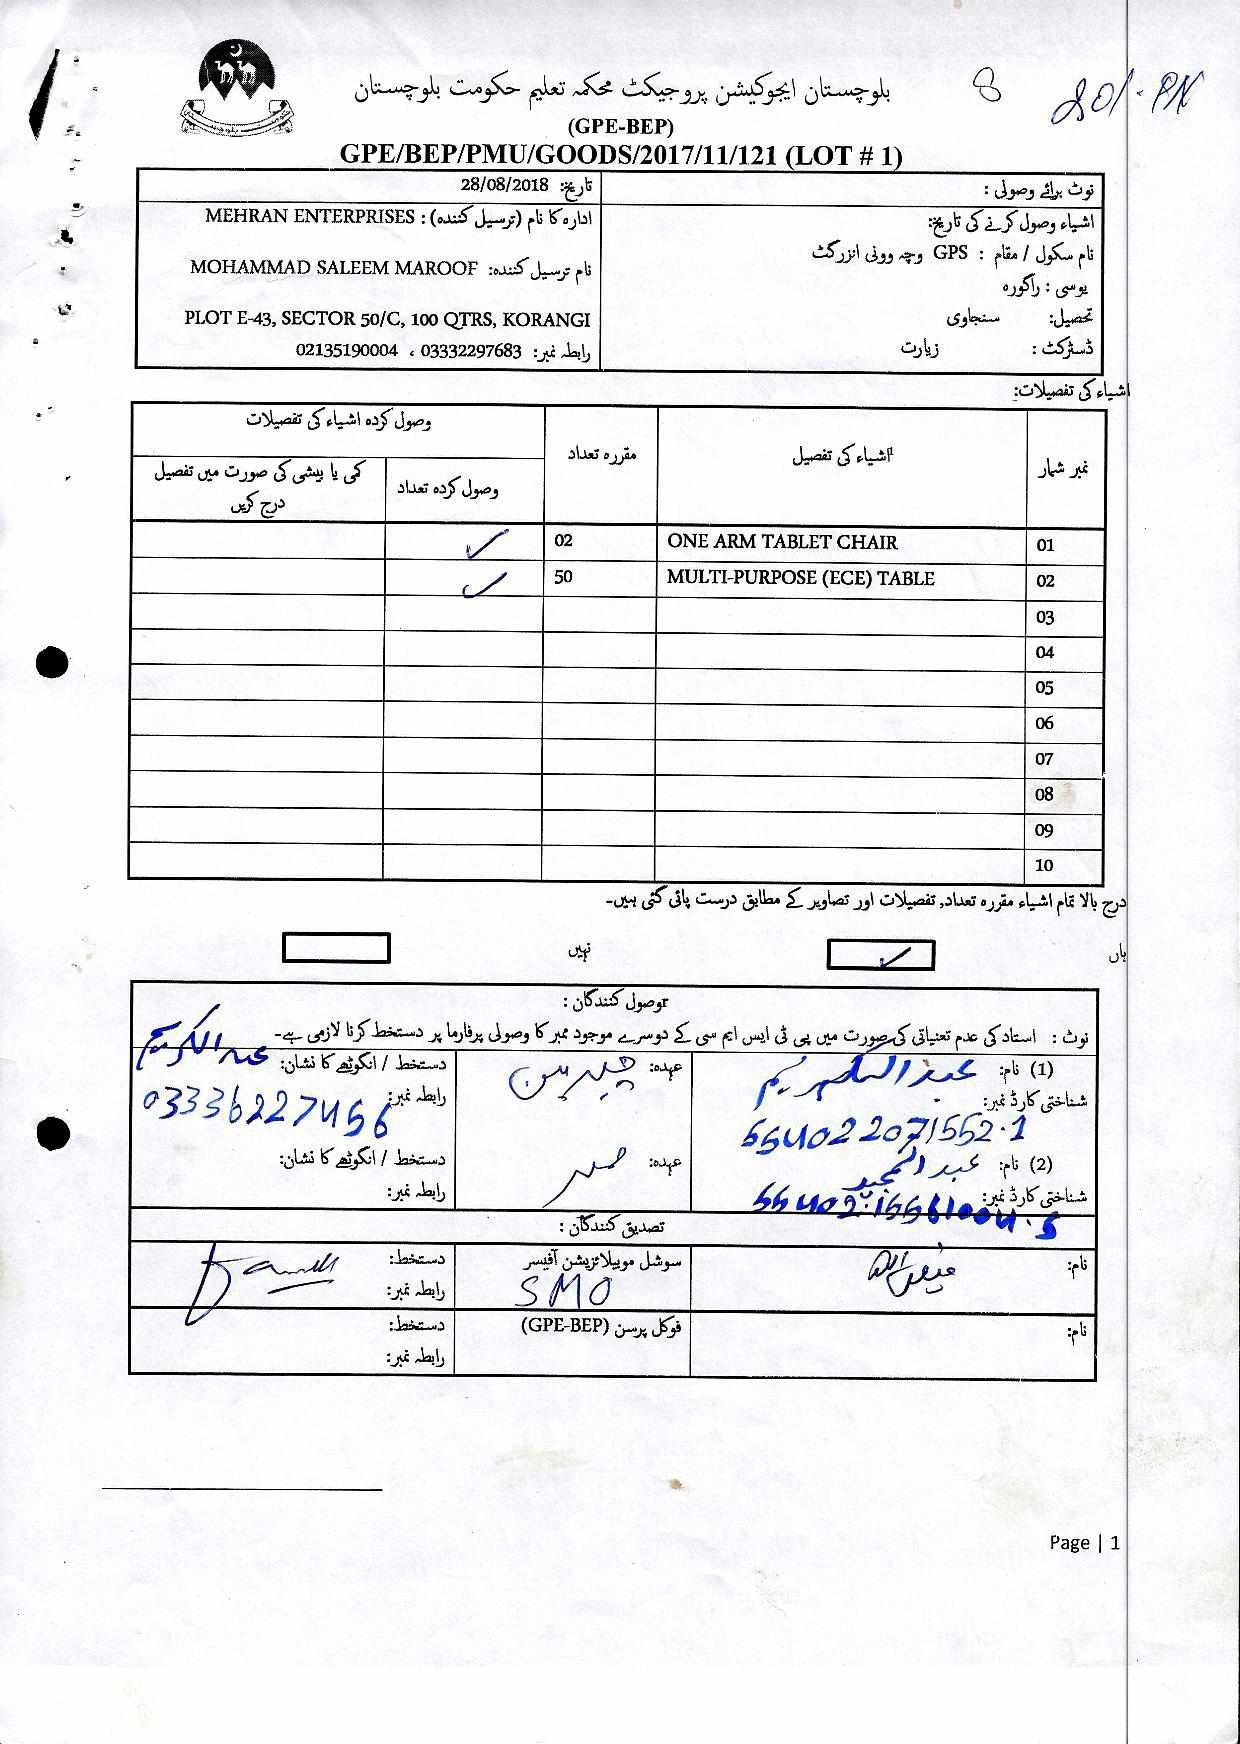 بلوچستان ایجوکیشن پروجیکٹ محکمہ تعلیم حکومت بلوچستان
8
(GPE-BEP)
GPE/BEP/PMU/GOODS/2017/11/121 (LOT # 1)
نوٹ برائے وصولی :
تاریخ: 28/08/2018
اشیاء وصول کرنے کی تاریخ:
نام سکول / مقام : GPS وچہ وونی انزرگٹ
یوسی : راگورہ
تحصیل: سنجاوی
ڈسٹرکٹ : زیارت
ادارہ کا نام (ترسیل کنندہ) : MEHRAN ENTERPRISES
نام ترسیل کنندہ: MOHAMMAD SALEEM MAROOF
PLOT E-43, SECTOR 50/C, 100 QTRS, KORANGI
رابطہ نمبر: 03332297683 ، 02135190004
اشیاء کی تفصیلات:
نمبر شمار
اشیاء کی تفصیل
مقررہ تعداد
وصول کردہ اشیاء کی تفصیلات
وصول کردہ تعداد
کمی یا بیشی کی صورت میں تفصیل
درج کریں
01 ONE ARM TABLET CHAIR 02 ✓
02 MULTI-PURPOSE (ECE) TABLE 50 ✓
03
04
05
06
07
08
09
10
درج بالا تمام اشیاء مقررہ تعداد, تفصیلات اور تصاویر کے مطابق درست پائی گئی ہیں۔
ہاں ✓ نہیں
وصول کنندگان :
نوٹ : استاد کی عدم تعیناتی کی صورت میں پی ٹی ایس ایم سی کے دوسرے موجود ممبر کا وصولی پرفارما پر دستخط کرنا لازمی ہے۔
(1) نام: عبدالکریم
شناختی کارڈ نمبر:
554022071552-1
عہدہ: چیرمین
دستخط / انگوٹھے کا نشان: عبدالکریم
رابطہ نمبر: 03336227456
(2) نام: عبدالمجید
شناختی کارڈ نمبر:
عہدہ: ممبر
دستخط / انگوٹھے کا نشان:
رابطہ نمبر:
تصدیق کنندگان :
نام:
سوشل موبیلائزیشن آفیسر
SMO
دستخط:
رابطہ نمبر:
نام:
فوکل پرسن (GPE-BEP)
دستخط:
رابطہ نمبر:
Page | 1